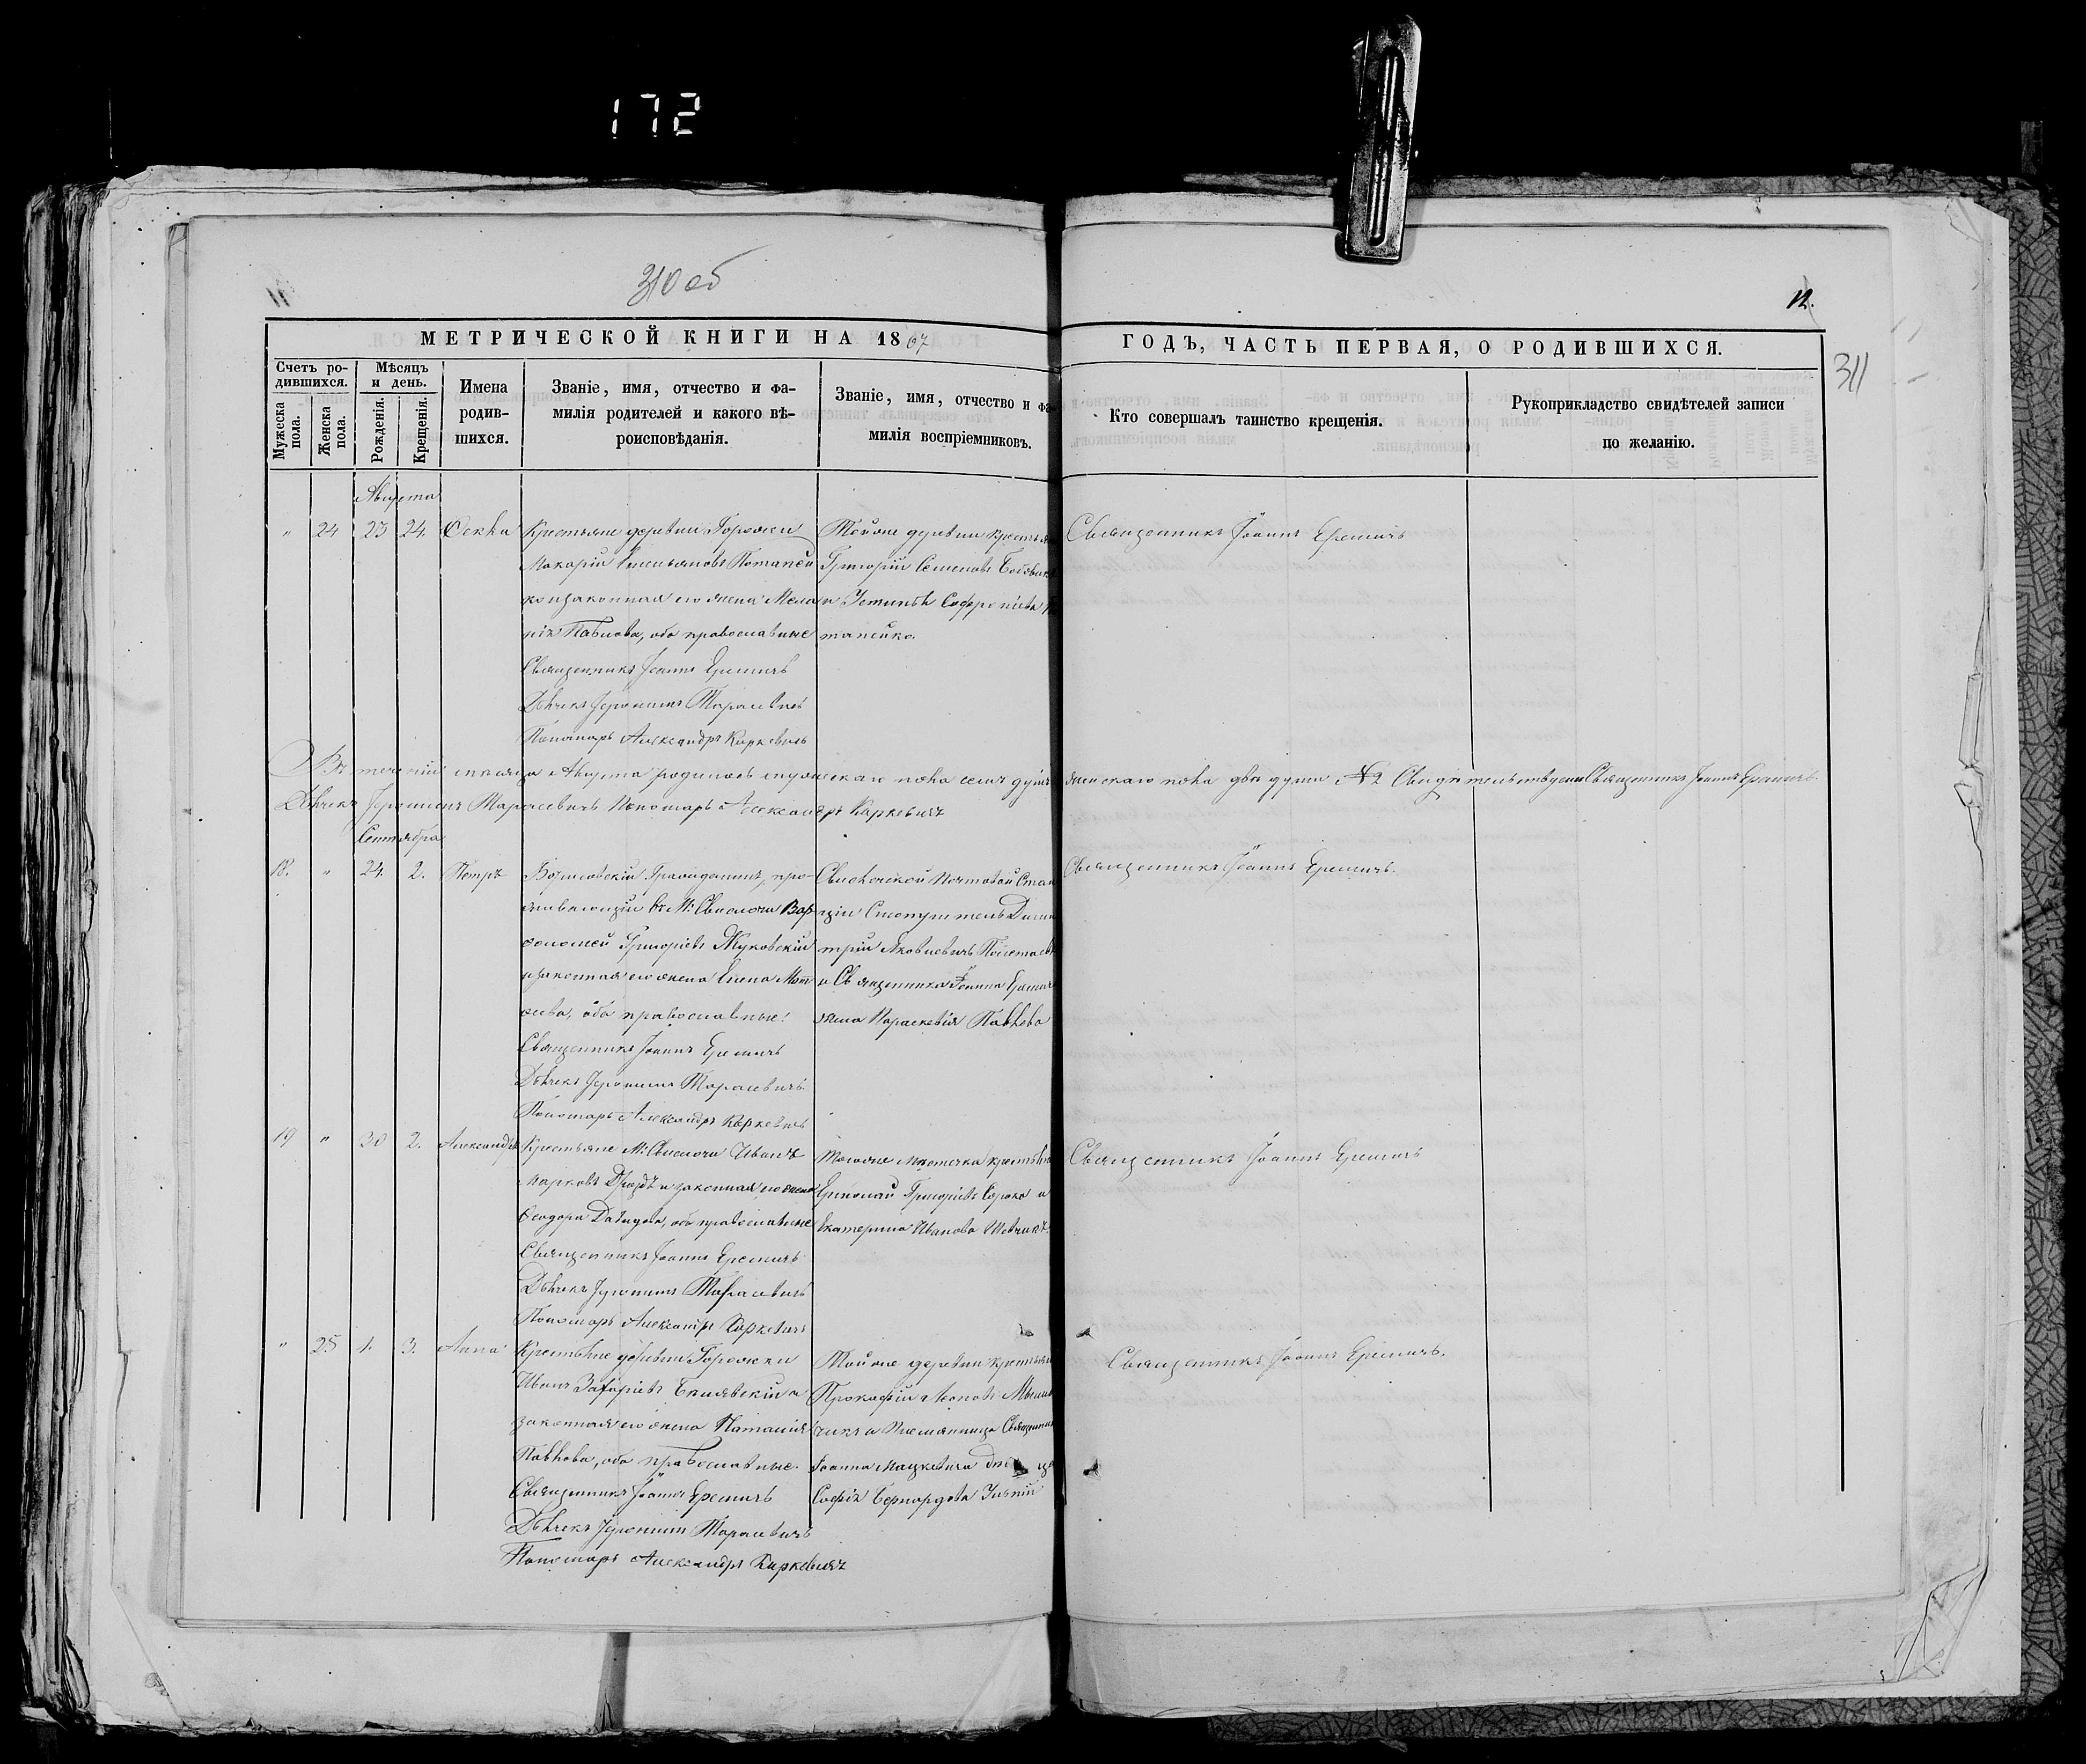 172
310 об
12.
311
МЕТРИЧЕСКОЙ КНИГИ НА 1867
ГОДЪ, ЧАСТЬ ПЕРВАЯ, О РОДИВШИХСЯ.
Счетъ ро-
дившихся.
Мужеска
пола.
Женска
пола.
Мѣсяцъ
и день.
Рожденія.
Крещенія.
Имена
родив-
шихся.
Званіе, имя, отчество и фа-
милія родителей и какого вѣ-
роисповѣданія.
Званіе, имя, отчество и фа-
милія воспріемниковъ.
Кто совершалъ таинство крещенія.
Рукоприкладство свидѣтелей записи
по желанію.
Августа
" 24 23 24. Ѳекла
Крестьяне деревни Горожи
Макарій Емельяновъ Потапей
ко и законная его жена Мела
нія Павлова, оба православные
Священникъ Іоаннъ Еремичъ
Дьячекъ Іеронимъ Тарасевичъ
Пономарь Александръ Каркевичъ
Тойже деревни крестьяне
Григорій Семеновъ
и Устинья Софроніева
тапейко.
Священникъ Іоаннъ Еремичъ
Въ теченіи мѣсяца Августа родилось мужескаго пола семь душъ женскаго пола двѣ души № 2 Священникъ Іоаннъ Еремичъ
Дьячекъ Іеронимъ Тарасевичъ Пономарь Александръ Каркевичъ
Сентября
18. " 24. 2. Петръ
Борисовскій Гражданинъ, про-
живающій въ М: Свислочи Вар-
ѳоломей Григорьевъ Жуковскій
и законная его жена Елена Мат
ѳеева, оба православные.
Священникъ Іоаннъ Еремичъ
Дьячекъ Іеронимъ Тарасевичъ
Пономарь Александръ Каркевичъ
Свислочской Почтовой Стан
ціи Смотритель Дими
трій Яковлевичъ
и Священника Іоанна Еремича
жена Параскевія Павлова
Священникъ Іоаннъ Еремичъ.
19 " 30 2. Александръ
Крестьяне М: Свислочи Иванъ
Марковъ Дроздъ и законная его жена
Ѳеодора Давидова, оба православные
Священникъ Іоаннъ Еремичъ
Дьячекъ Іеронимъ Тарасевичъ
Пономарь Александръ Каркевичъ
Тогоже мѣстечка крестьяне
Ермолай Григорьевъ Сорока и
Екатерина Иванова Шевчикъ.
Священникъ Іоаннъ Еремичъ
" 25 1. 3. Анна
Крестьяне деревни Горожи
Иванъ Захаріевъ Белявскій и
законная его жена Наталія
Павлова, оба православные.
Священникъ Іоаннъ Еремичъ
Дьячекъ Іеронимъ Тарасевичъ
Пономарь Александръ Каркевичъ
Тойже деревни крестьянинъ
Прокофій
чикъ и племянница Священника
Іоанна Мацкевича
Софія Бернардова
Священникъ Іоаннъ Еремичъ.